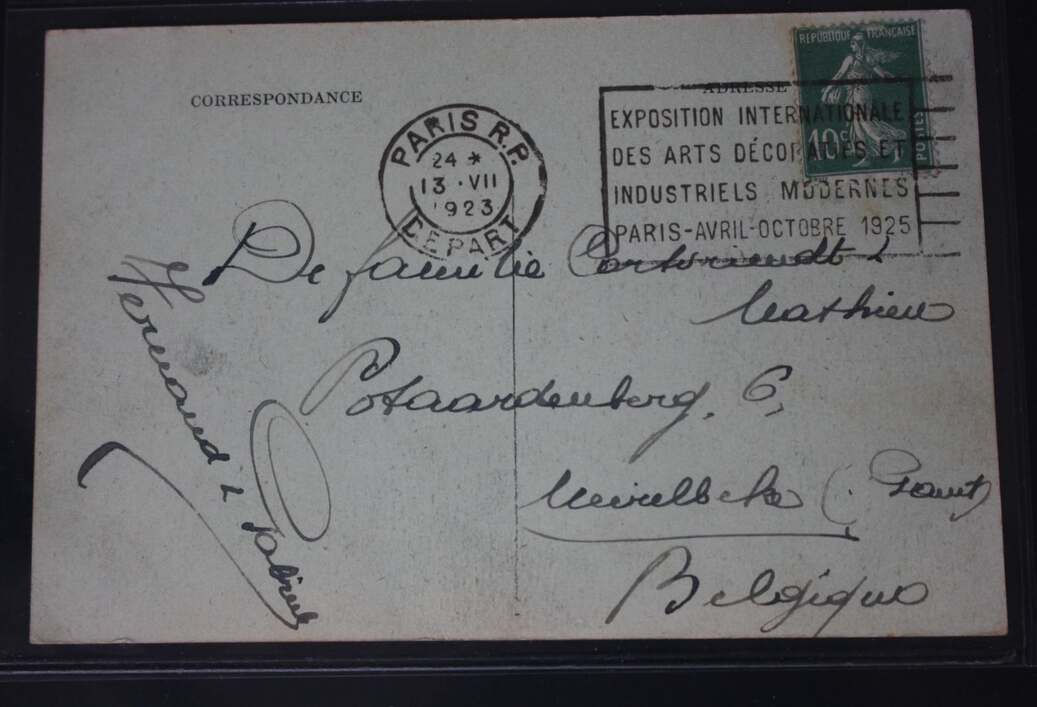 CORRESPONDANCE
ADRESSE
REPUBLIQUE FRANÇAISE
10c
POSTES
PARIS R.P.
24 *
13 · VII
1923
DEPART
EXPOSITION INTERNATIONALE
DES ARTS DÉCORATIFS ET
INDUSTRIELS MODERNES
PARIS-AVRIL-OCTOBRE 1925
De familie
Mathieu
Potaardenberg, 6,
Meirelbeke (Gand)
Belgique